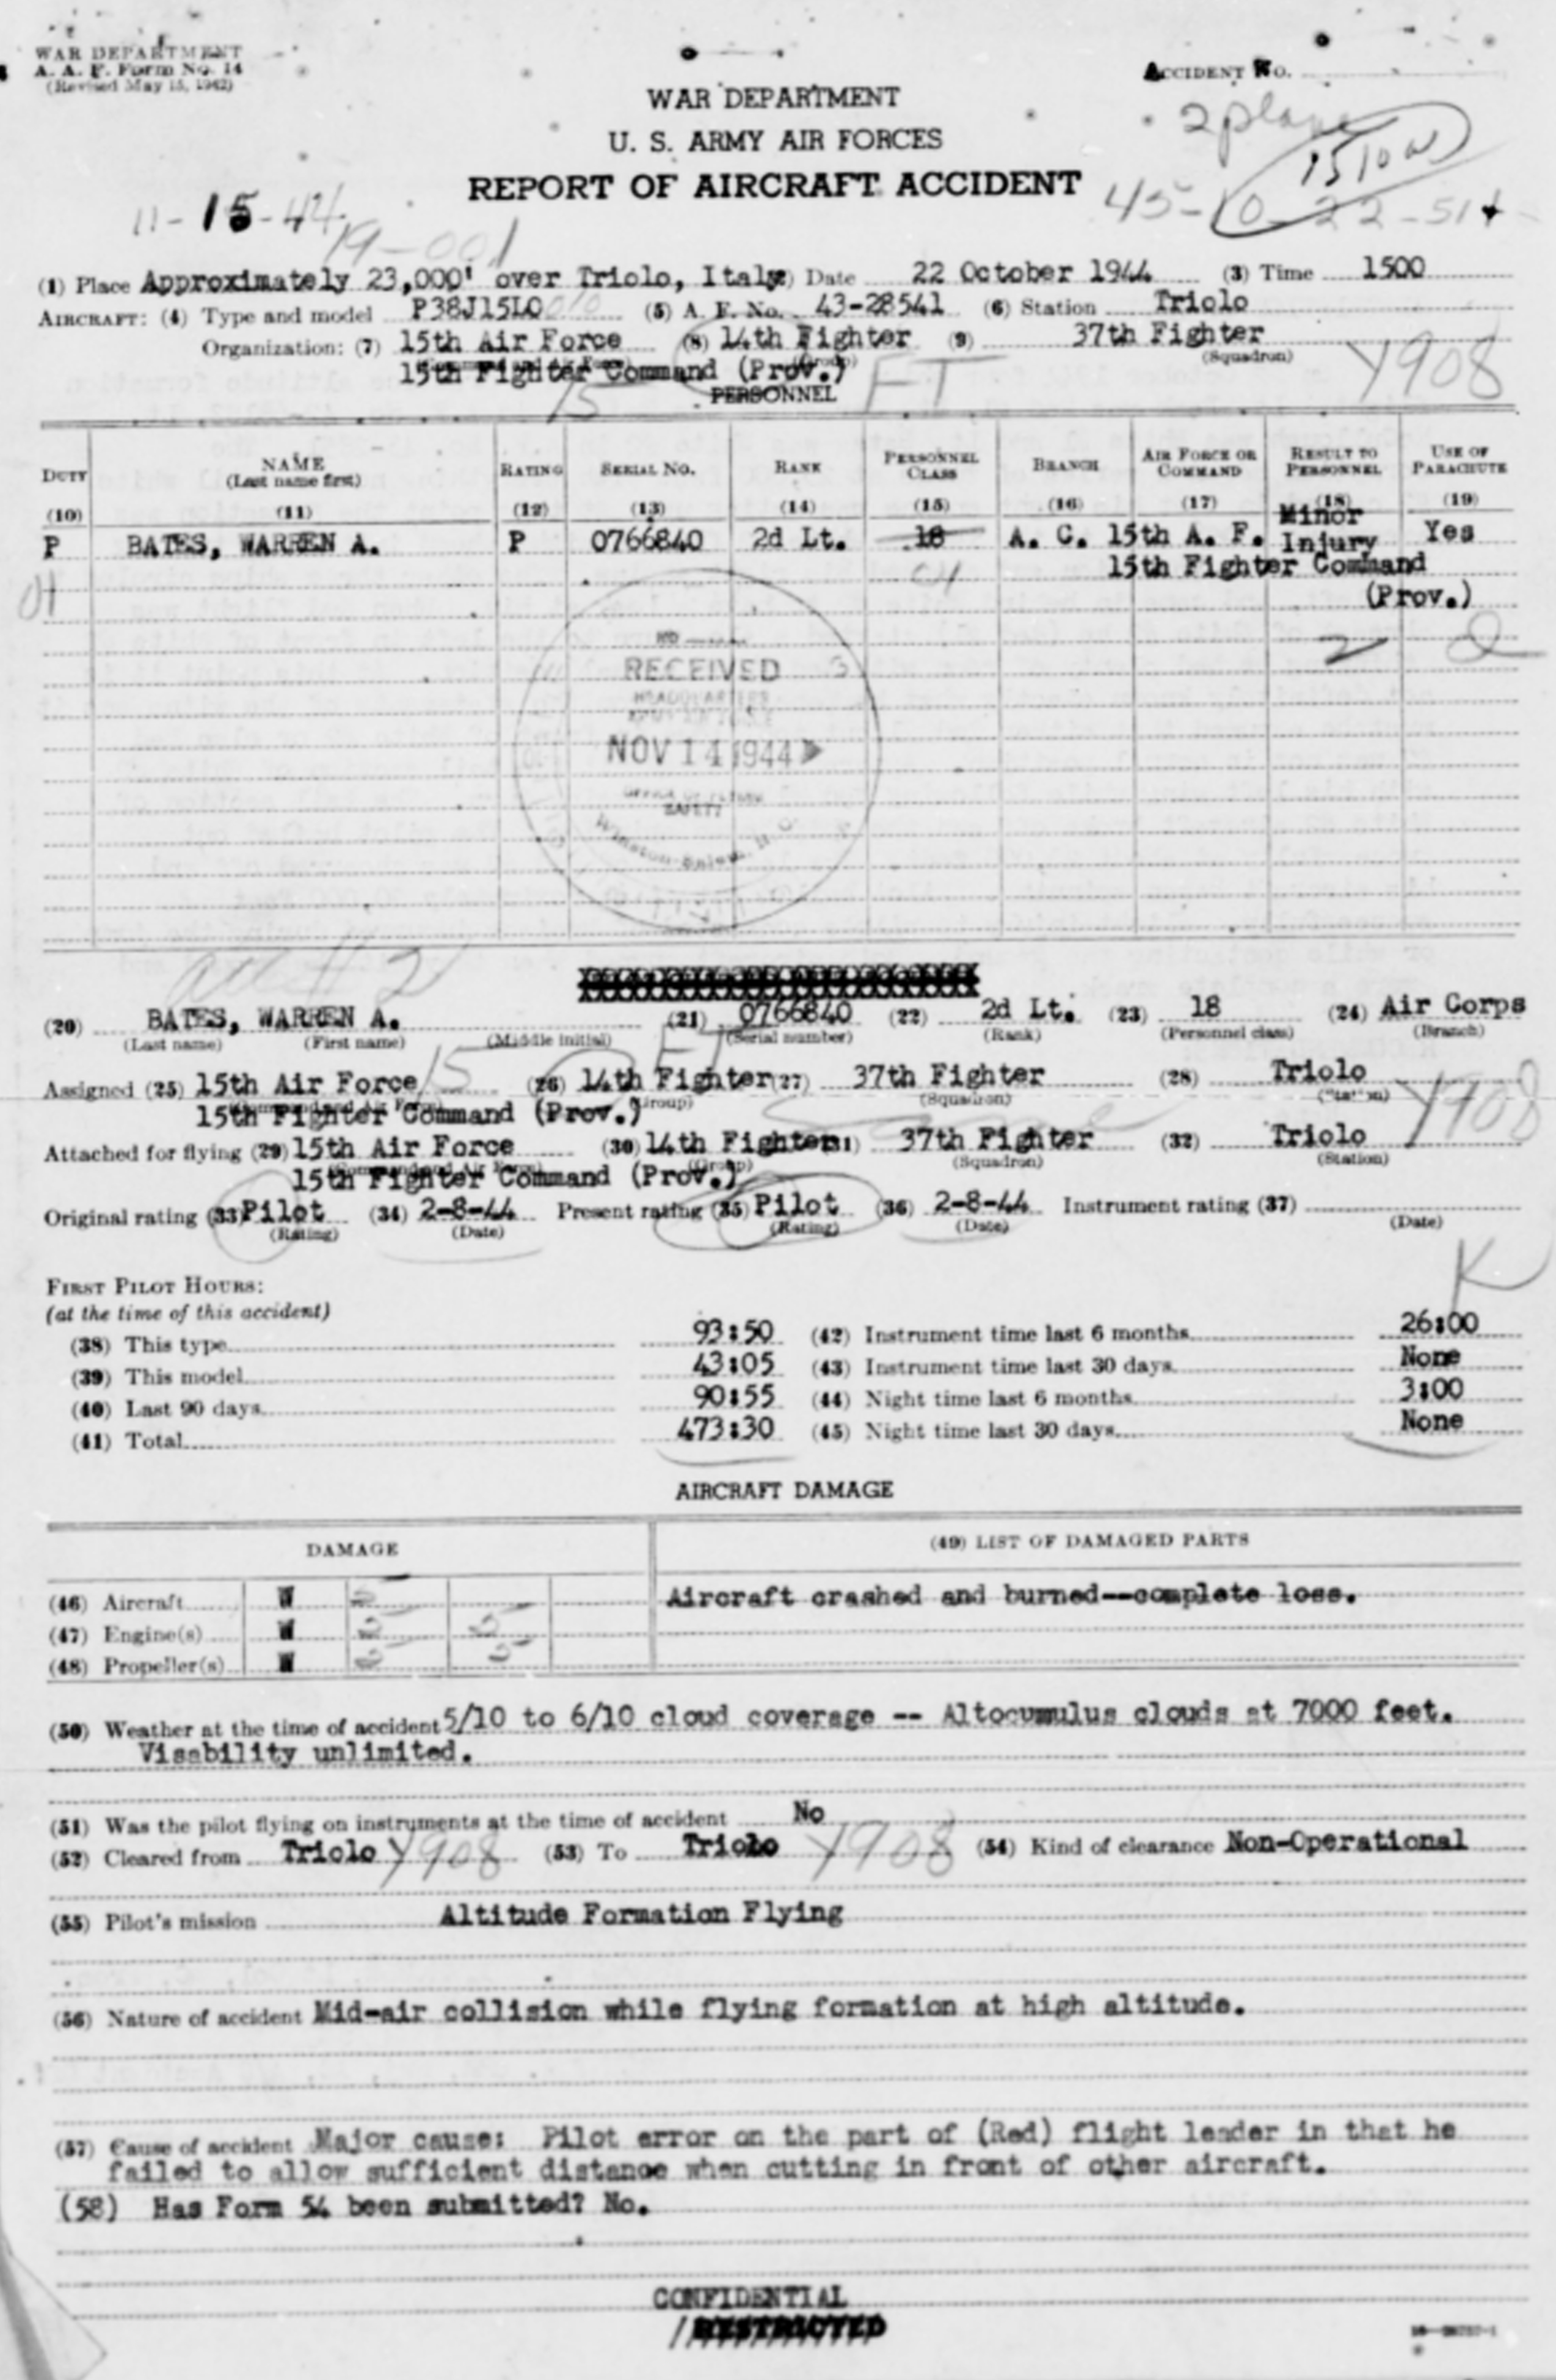 WAR DEPARTMENT
A. A. F. Form No. 14
(Revised May 15, 1942)
ACCIDENT No.
WAR DEPARTMENT
U. S. ARMY AIR FORCES
REPORT OF AIRCRAFT ACCIDENT
2 plane
1510 W
45-10-22-514
11-15-44
19-001
(1) Place Approximately 23,000' over Triolo, Italy (2) Date 22 October 1944 (3) Time 1500
AIRCRAFT: (4) Type and model P38J15LO (5) A. F. No. 43-28541 (6) Station Triolo
Organization: (7) 15th Air Force (8) 14th Fighter (9) 37th Fighter
(Group) (Squadron)
15th Fighter Command (Prov.)
15 FT Y908
PERSONNEL
DUTY NAME (Last name first) RATING SERIAL NO. RANK PERSONNEL CLASS BRANCH AIR FORCE OR COMMAND RESULT TO PERSONNEL USE OF PARACHUTE
(10) (11) (12) (13) (14) (15) (16) (17) (18) (19)
P BATES, WARREN A. P 0766840 2d Lt. 18 A. C. 15th A. F. Minor Injury Yes
01 01 15th Fighter Command
(Prov.)
2 2
RECEIVED
HEADQUARTERS
NOV 14 1944
OFFICE OF FLYING
SAFETY
Winston-Salem, N. C.
acc #2
(20) BATES, WARREN A. (21) 0766840 (22) 2d Lt. (23) 18 (24) Air Corps
(Last name) (First name) (Middle initial) (Serial number) (Rank) (Personnel class) (Branch)
15 FT
Assigned (25) 15th Air Force (26) 14th Fighter (27) 37th Fighter (28) Triolo
(Command and Air Force) (Group) (Squadron) (Station) Y908
15th Fighter Command (Prov.)
Attached for flying (29) 15th Air Force (30) 14th Fighter (31) 37th Fighter (32) Triolo
(Command and Air Force) (Group) (Squadron) (Station)
15th Fighter Command (Prov.)
Original rating (33) Pilot (34) 2-8-44 Present rating (35) Pilot (36) 2-8-44 Instrument rating (37)
(Rating) (Date) (Rating) (Date) (Date)
K
FIRST PILOT HOURS:
(at the time of this accident)
(38) This type 93:50 (42) Instrument time last 6 months 26:00
(39) This model 43:05 (43) Instrument time last 30 days None
(40) Last 90 days 90:55 (44) Night time last 6 months 3:00
(41) Total 473:30 (45) Night time last 30 days None
AIRCRAFT DAMAGE
DAMAGE (49) LIST OF DAMAGED PARTS
(46) Aircraft W Aircraft crashed and burned--complete loss.
(47) Engine(s) W
(48) Propeller(s) W
(50) Weather at the time of accident 5/10 to 6/10 cloud coverage -- Altocumulus clouds at 7000 feet.
Visability unlimited.
(51) Was the pilot flying on instruments at the time of accident No
(52) Cleared from Triolo Y908 (53) To Triolo Y908 (54) Kind of clearance Non-Operational
(55) Pilot's mission Altitude Formation Flying
(56) Nature of accident Mid-air collision while flying formation at high altitude.
(57) Cause of accident Major cause: Pilot error on the part of (Red) flight leader in that he
failed to allow sufficient distance when cutting in front of other aircraft.
(58) Has Form 54 been submitted? No.
CONFIDENTIAL
RESTRICTED